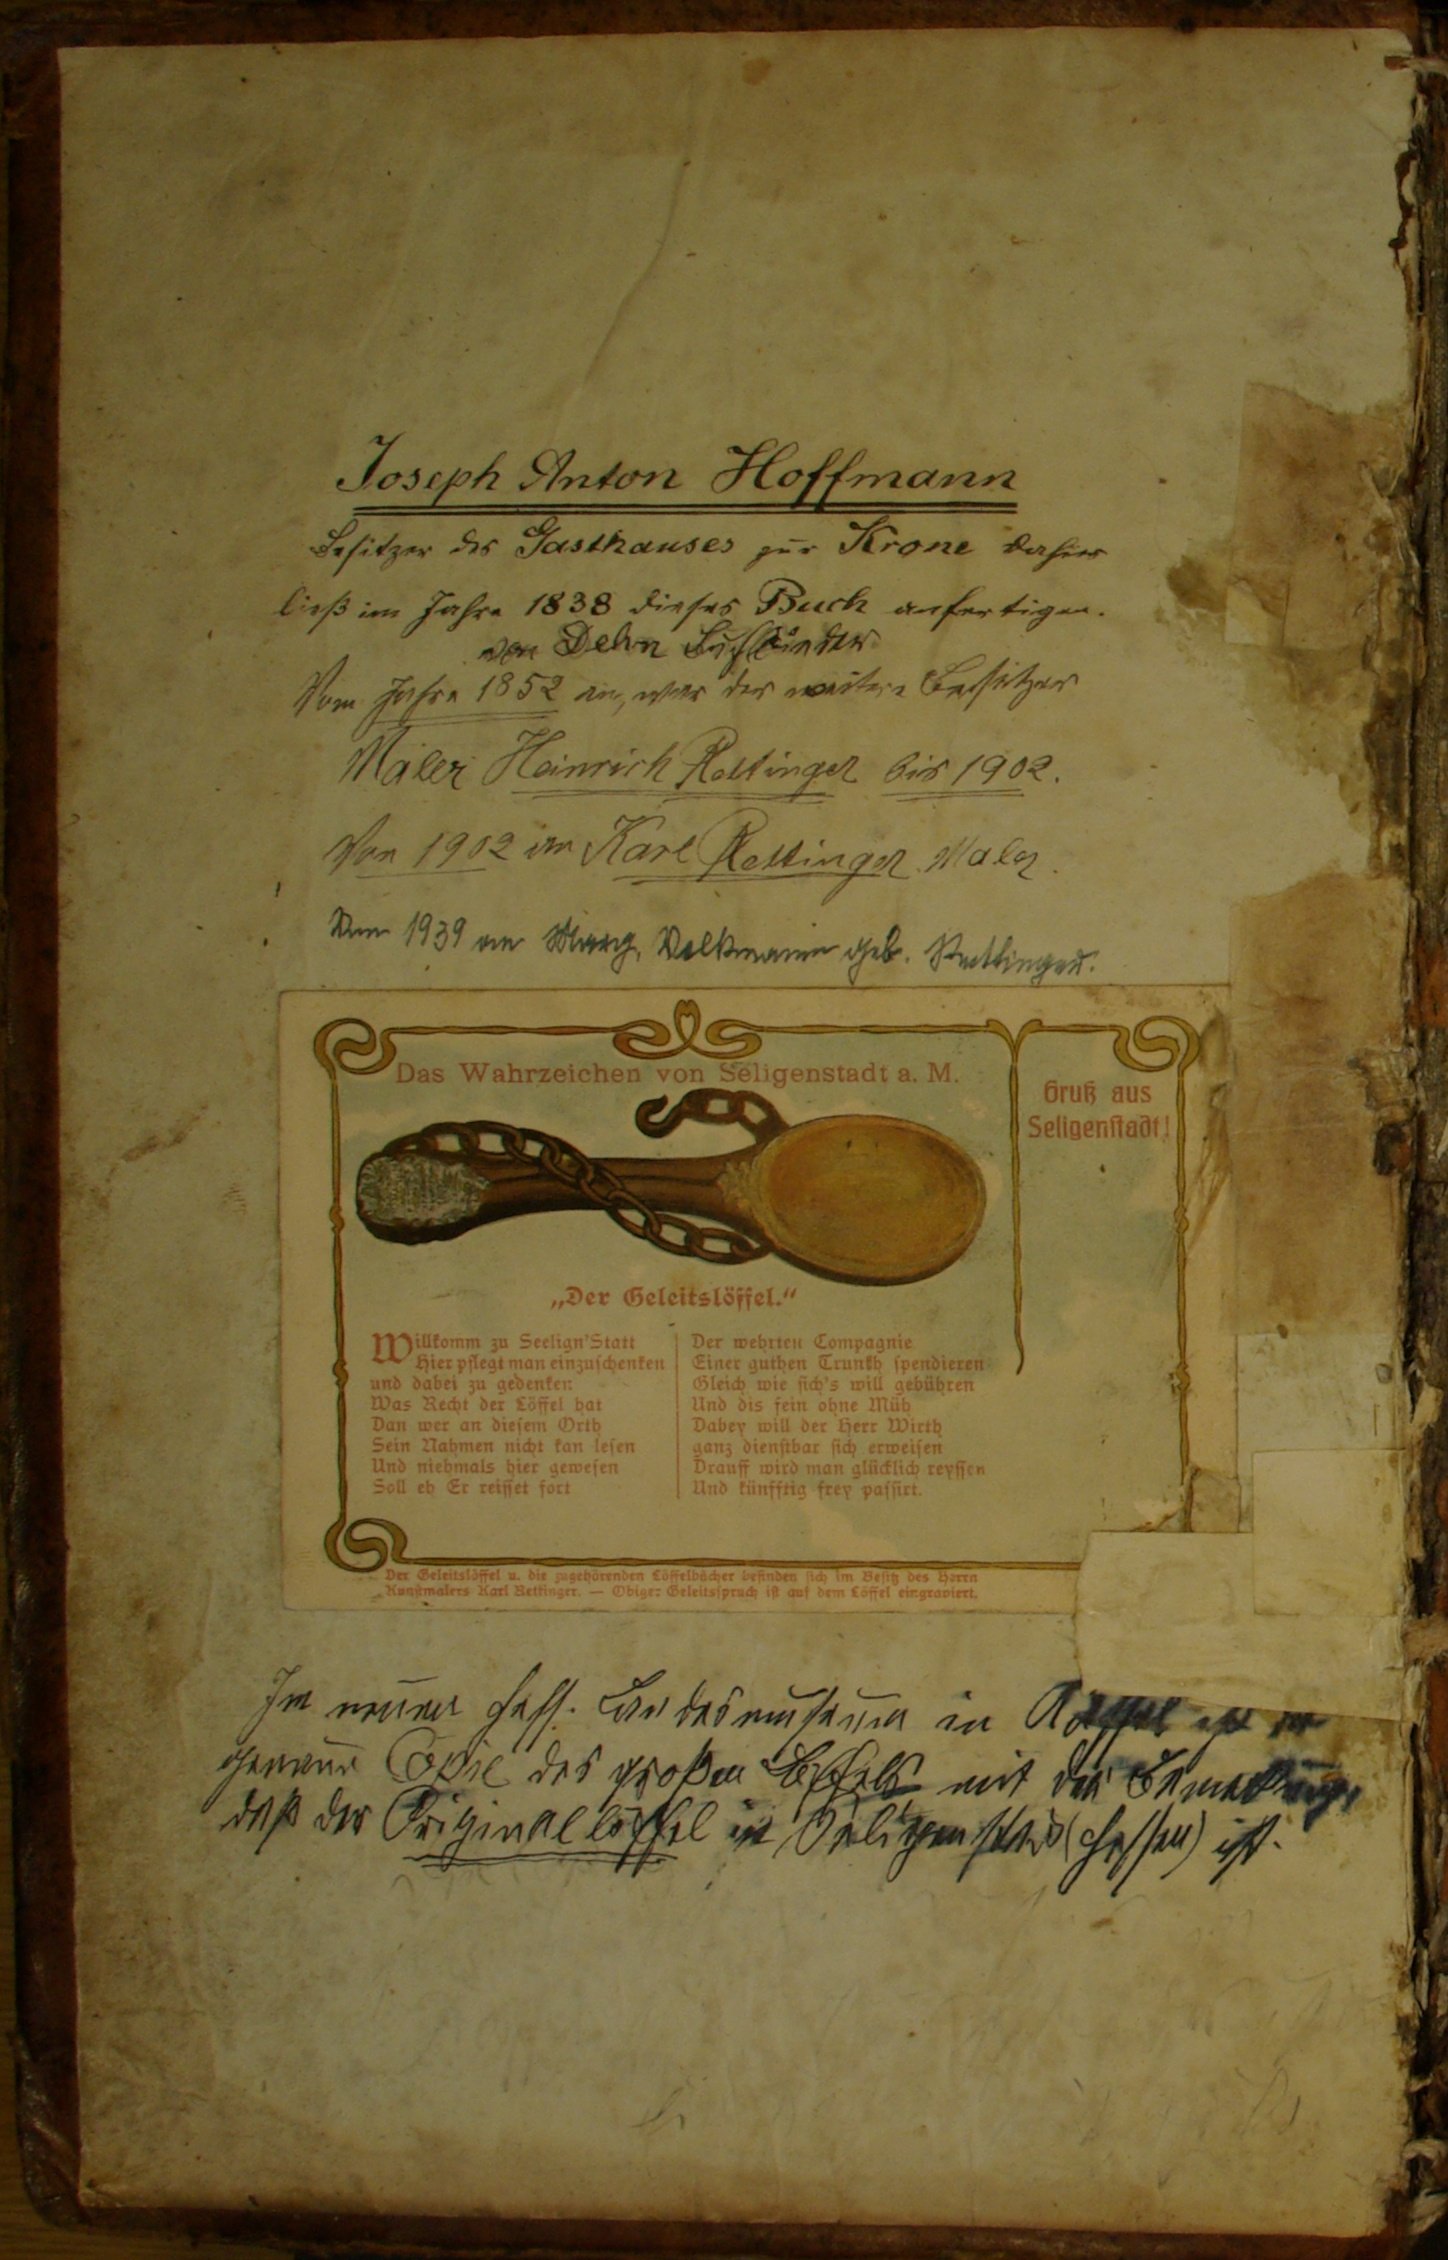 Joseph Anton Hoffmann
Besitzer des Gasthauses zur Krone dahier
ließ im Jahre 1838 dieses Buch anfertigen.
von Dehn Buchbinder
Vom Jahre 1852 an, war der weitere Besitzer
Maler Heinrich Rettinger bis 1902.
Von 1902 an Karl Rettinger Maler.
Von 1939 an Marg. Volkmann geb. Rettinger.
Das Wahrzeichen von Seligenstadt a. M.
Gruß aus
Seligenstadt!
„Der Geleitslöffel.“
Willkomm zu Seelign'Statt
Hier pflegt man einzuschenken
und dabei zu gedenken
Was Recht der Löffel hat
Dan wer an diesem Orth
Sein Nahmen nicht kan lesen
Und niehmals hier gewesen
Soll eh Er reisset fort
Der wehrten Compagnie
Einer guthen Trunkh spendieren
Gleich wie sich's will gebühren
Und dis fein ohne Müh
Dabey will der Herr Wirth
ganz dienstbar sich erweisen
Drauff wird man glücklich reyssen
Und künfftig frey passirt.
Der Geleitslöffel u. die zugehörenden Löffelbücher befinden sich im Besitz des Herrn
Kunstmalers Karl Rettinger. — Obiger Geleitsspruch ist auf dem Löffel eingraviert.
Im neuen hess. Landesmuseum in Kassel ist
genaue Copie des großen Löffels mit der Bemerkung,
daß der Originallöffel in Seligenstadt (Hessen) ist.